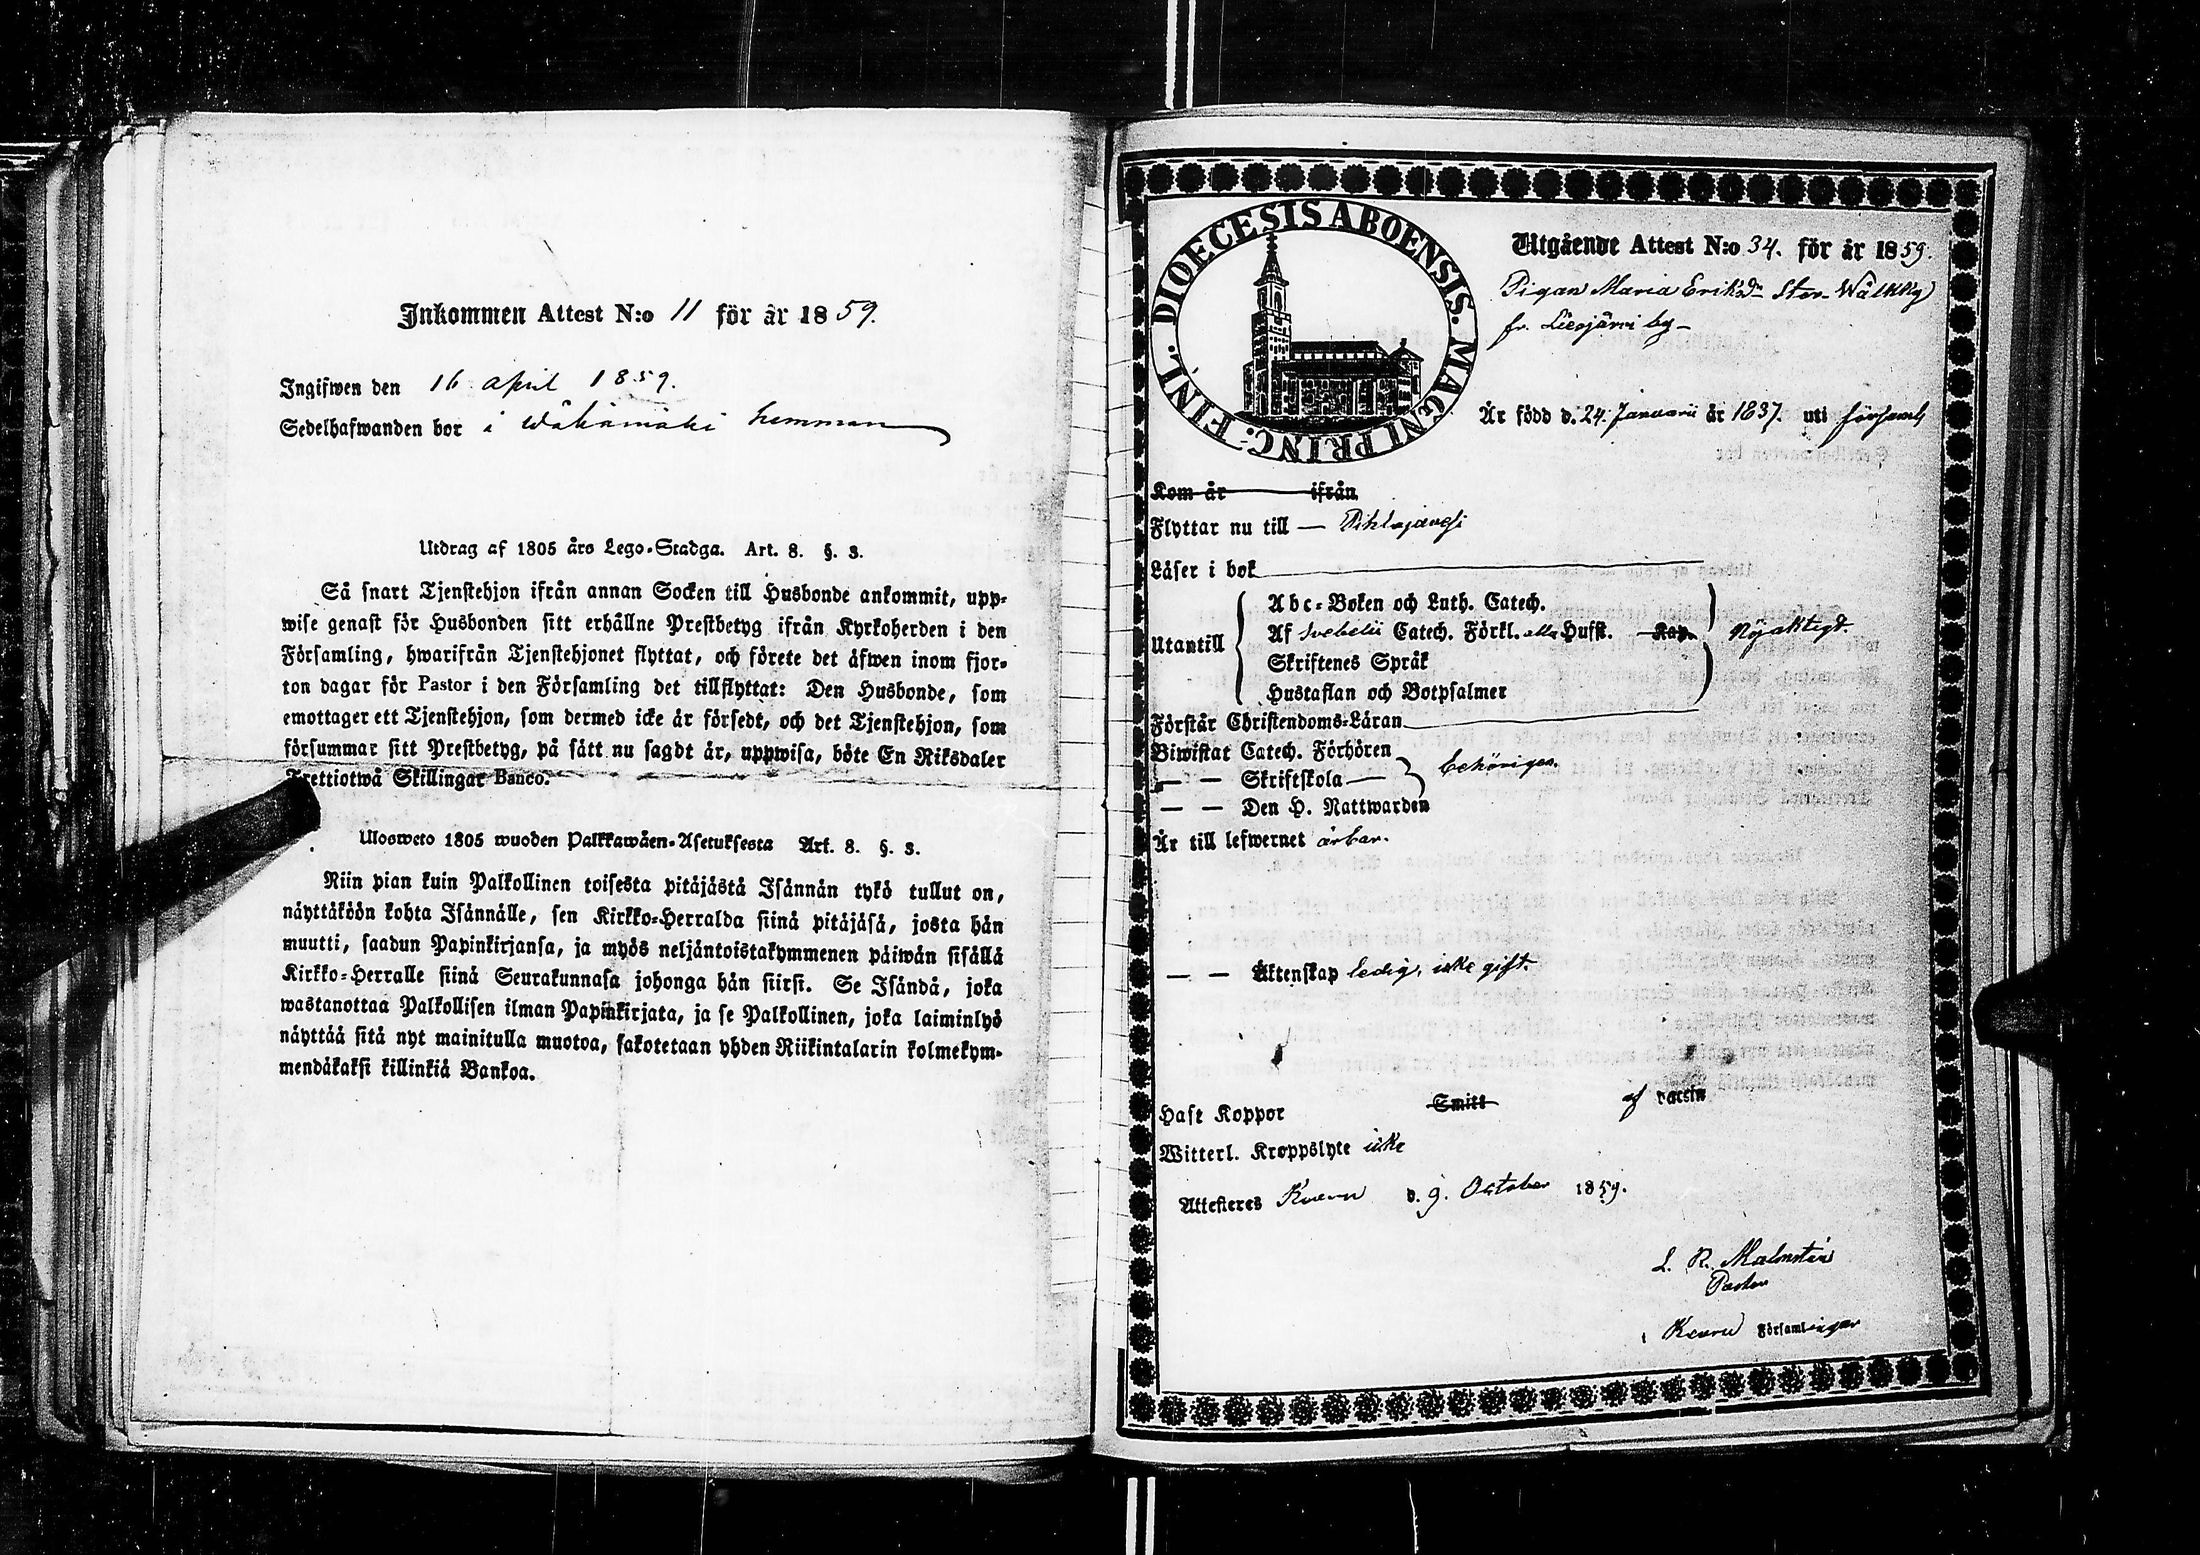 Inkommen Attest N:o 11 för år 1859.
Ingifwen den 16 april 1859.
Sedelhafwanden bor i Wähämäki hemman
Utdrag af 1805 års Lego-Stadga. Art. 8. §. 3.
Så snart Tjenstehjon ifrån annan Socken till Husbonde ankommit, upp-
wise genast för Husbonden sitt erhållne Prestbetyg ifrån Kyrkoherden i den
Församling, hwarifrån Tjenstehjonet flyttat, och förete det äfwen inom fjor-
ton dagar för Pastor i den Församling det tillflyttat: Den Husbonde, som
emottager ett Tjenstehjon, som dermed icke är försedt, och det Tjenstehjon, som
försummar sitt Prestbetyg, på sätt nu sagdt är, uppwisa, böte En Riksdaler
Trettiotwå Skillingar Banco.
Ulosweto 1805 wuoden Palkkawäen-Asetuksesta Art. 8. §. 3.
Niin pian kuin Palkollinen toisesta pitäjästä Isännän tykö tullut on,
näyttäköön kohta Isännälle, sen Kirkko-Herralda siinä pitäjäsä, josta hän
muutti, saadun Papinkirjansa, ja myös neljäntoistakymmenen päiwän sisällä
Kirkko-Herralle siinä Seurakunnasa johonga hän siirsi. Se Isändä, joka
wastanottaa Palkollisen ilman Papinkirjata, ja se Palkollinen, joka laiminlyö
näyttää sitä nyt mainitulla muotoa, sakotetaan yhden Riikintalarin kolmekym-
mendäkaksi killinkiä Bankoa.
DIOECESIS ABOENSIS. MAGNI PRINC. FINL.
Utgående Attest N:o 34. för år 1859.
Pigan Maria Eriksdr Stor-Wälkky
fr. Liesjärvi by
Är född d. 24. Januarii år 1837. uti förssaml
Kom år ifrån
Flyttar nu till — Pihlajavesi
Läser i bok
Utantill
Abc-Boken och Luth. Catech.
Af Svebelii Catech. Förkl. alla Hufst. Kap.
Skriftenes Språk
Hustaflan och Botpsalmer
Nöjaktigt.
Förstår Christendoms-Läran
Biwistat Catech. Förhören
— — Skriftskola —
— — Den H. Nattwarden
behörigen.
Är till lefwernet ärbar.
— — Äktenskap ledig, icke gift.
Haft Koppor Smitt af vaccin
Witterl. Kroppslyte icke
Attesteres Keuru d. 9. October 1859.
L. R. Malmstén
Pastor
i Keuru Församlingar